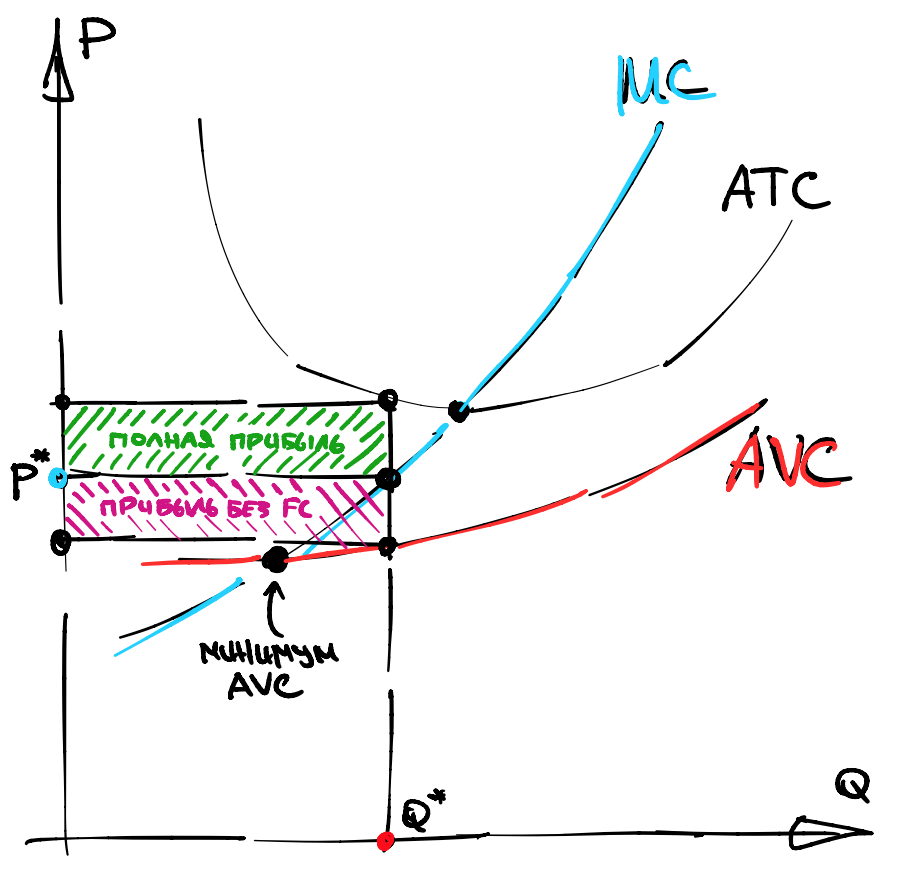 P
MC
ATC
ПОЛНАЯ ПРИБЫЛЬ
AVC
P*
ПРИБЫЛЬ БЕЗ FC
МИНИМУМ
AVC
Q*
Q